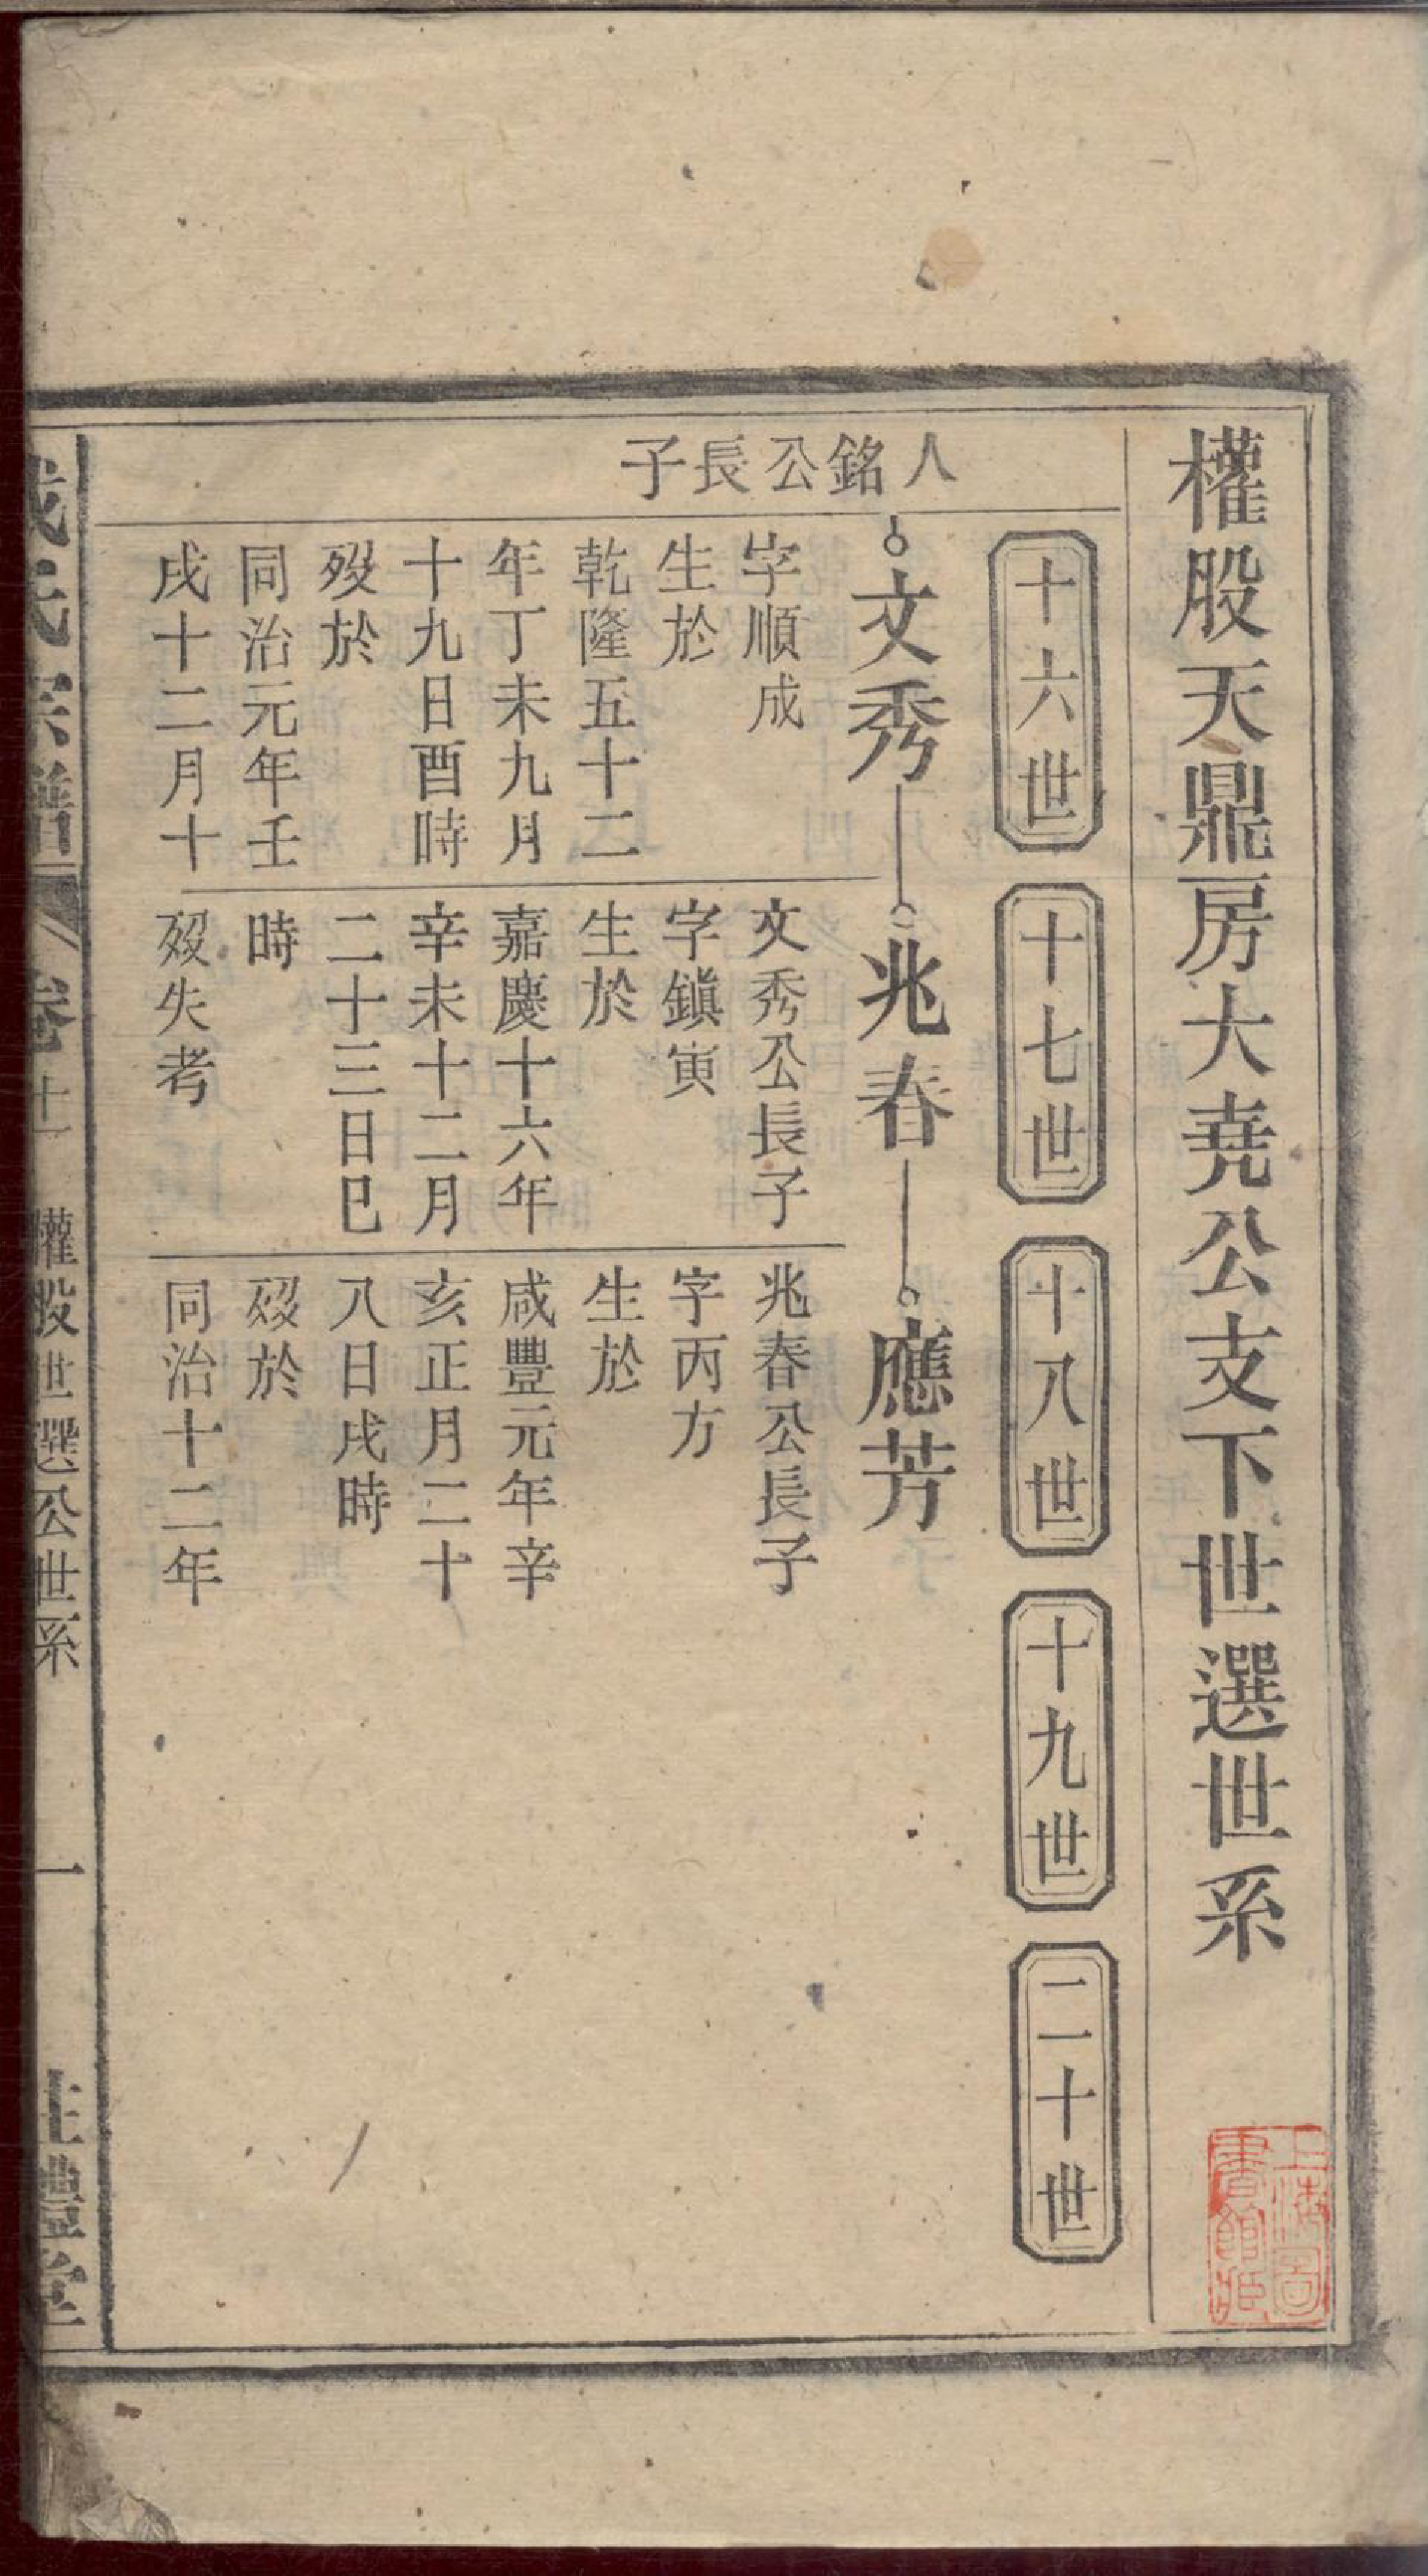 權股天鼎房大堯公支下世選世系
十六世
十七世
十八世
十九世
二十世
人銘公長子
文秀
字順成
生於
乾隆五十二
年丁未九月
十九日酉時
歿於
同治元年壬
戌十二月十
兆春
文秀公長子
字鎮寅
生於
嘉慶十六年
辛未十二月
二十三日巳
時
歿失考
應芳
兆春公長子
字丙方
生於
咸豐元年辛
亥正月二十
八日戌時
歿於
同治十二年
氏宗譜
卷十一
權股世選公世系
一
禮堂
上海圖書館藏